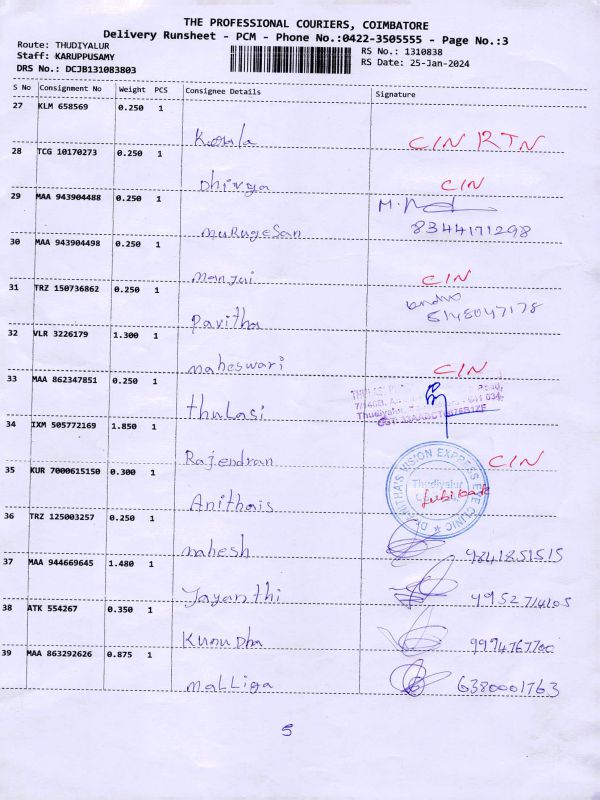 THE PROFESSIONAL COURIERS, COIMBATORE
Delivery Runsheet - PCM - Phone No.:0422-3505555 - Page No.:3
Route: THUDIYALUR
RS No.: 1310838
Staff: KARUPPUSAMY
RS Date: 25-Jan-2024
DRS No.: DCJB131083803
S No Consignment No Weight PCS Consignee Details Signature
27 KLM 658569 0.250 1
CIN RTN
28 TCG 10170273 0.250 1
Dhivya CIN
29 MAA 943904488 0.250 1
MuRugeSan 8344171298
30 MAA 943904498 0.250 1
CIN
31 TRZ 150736862 0.250 1
Pavitha
32 VLR 3226179 1.300 1
maheswari CIN
33 MAA 862347851 0.250 1
thulasi
34 IXM 505772169 1.850 1
Rajendran CIN
35 KUR 7000615150 0.300 1
Anithais
DR. ANITHA'S VISION EXPRESS EYE CLINIC
Thudiyalur
36 TRZ 125003257 0.250 1
mahesh 9841851515
37 MAA 944669645 1.480 1
Jayanthi
38 ATK 554267 0.350 1
39 MAA 863292626 0.875 1
maLLiga 6380001763
5